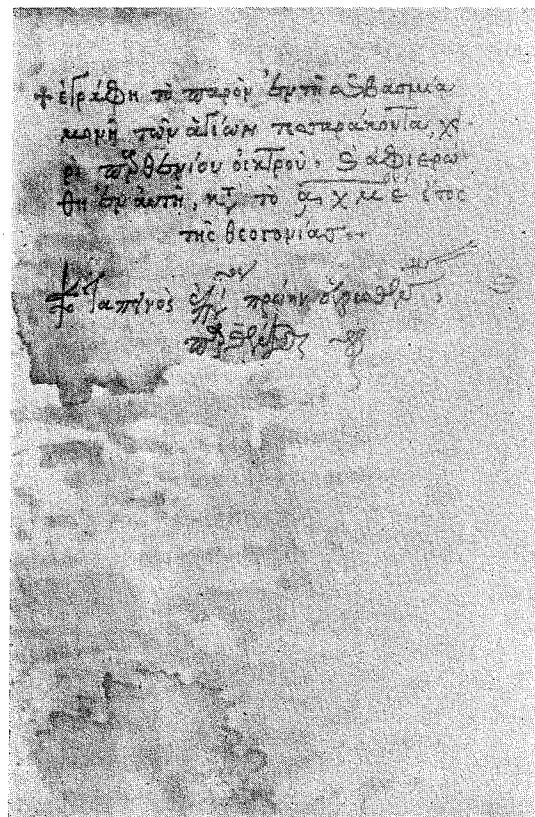 + ἐγράφη τὸ παρὸν ἐν τῆ σεβασμία
μονῆ τῶν ἁγίων τεσσαράκοντα, χει
ρὶ παρθενίου οἰκτροῦ. καὶ ἀφιερώ
θη ἐν αὐτῆ, κατὰ τὸ ͵αχμε ἔτος
τῆς θεογονίας.
ταπεινὸς πρώην
παρθένιος